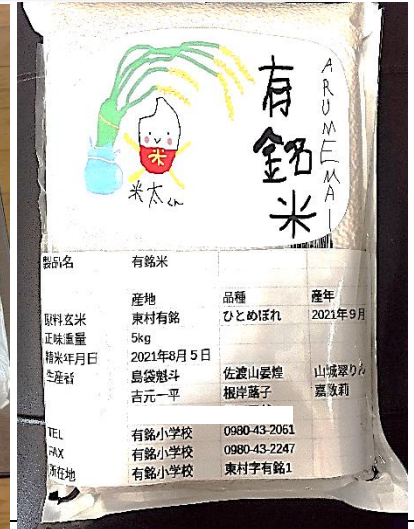 ARUMEMAI
有銘米
米
米太くん
製品名 有銘米
産地 品種 産年
原料玄米 東村有銘 ひとめぼれ 2021年9月
正味重量 5kg
精米年月日 2021年8月5日
生産者 島袋魁斗 佐渡山晏煌 山城翠りん
吉元一平 根岸蕗子 嘉数莉
TEL 有銘小学校 0980-43-2061
FAX 有銘小学校 0980-43-2247
所在地 有銘小学校 東村字有銘1